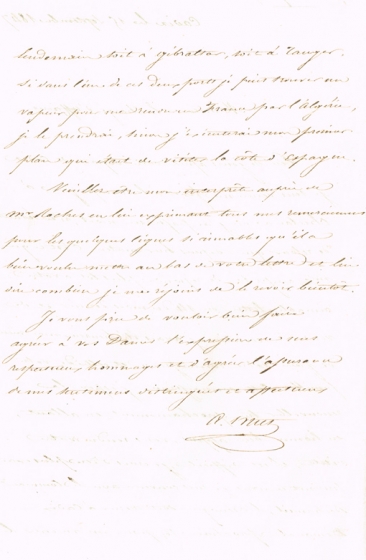 lendemain soit à Gibraltar, soit à Tanger.
Si dans l'un de ces deux ports je puis trouver un
vapeur pour me rendre en France par l'Algérie,
je le prendrai, sinon j'exécuterai mon premier
plan qui était de visiter la côte d'Espagne.
Veuillez être mon interprète auprès de
Mr Roches en lui exprimant tous mes remerciements
pour les quelques lignes si aimables qu'il a
bien voulu mettre au bas de votre lettre et lui
dire combien je me réjouis de le revoir bientôt.
Je vous prie de vouloir bien faire
agréer à vos Dames l'expression de mes
respectueux hommages et d'agréer l'assurance
de mes sentiments distingués et affectueux